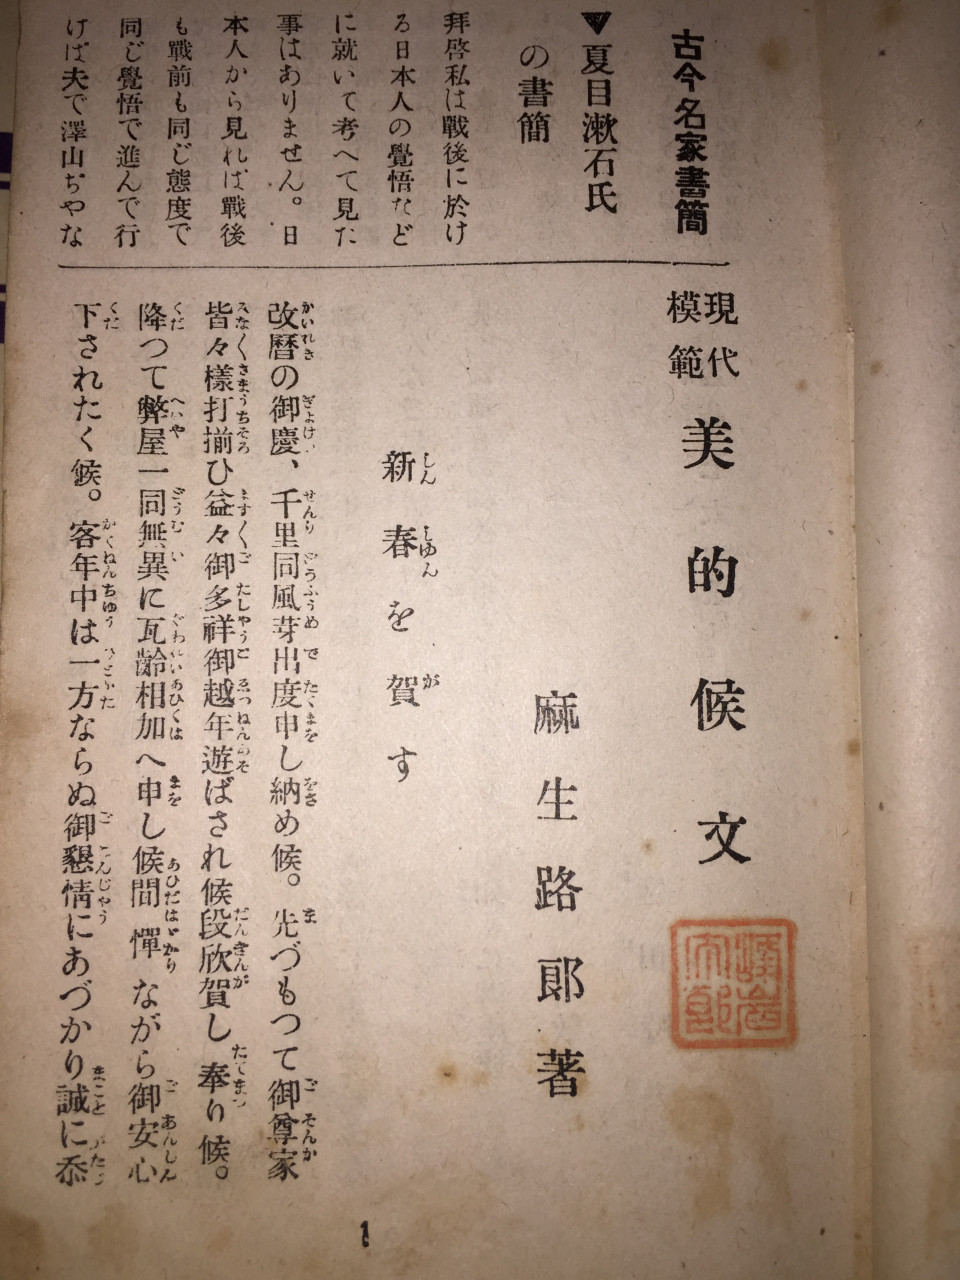 古今名家書簡
▼夏目漱石氏
の書簡
拜啓私は戰後に於け
る日本人の覺悟など
に就いて考へて見た
事はありません。日
本人から見れば戰後
も戰前も同じ態度で
同じ覺悟で進んで行
けば夫で澤山ぢやな
現代
模範
美的候文
麻生路郎著
新春を賀す
改曆の御慶、千里同風芽出度申し納め候。先づもつて御尊家
皆々樣打揃ひ益々御多祥御越年遊ばされ候段欣賀し奉り候。
降つて弊屋一同無異に瓦齡相加へ申し候間憚ながら御安心
下されたく候。客年中は一方ならぬ御懇情にあづかり誠に忝
1